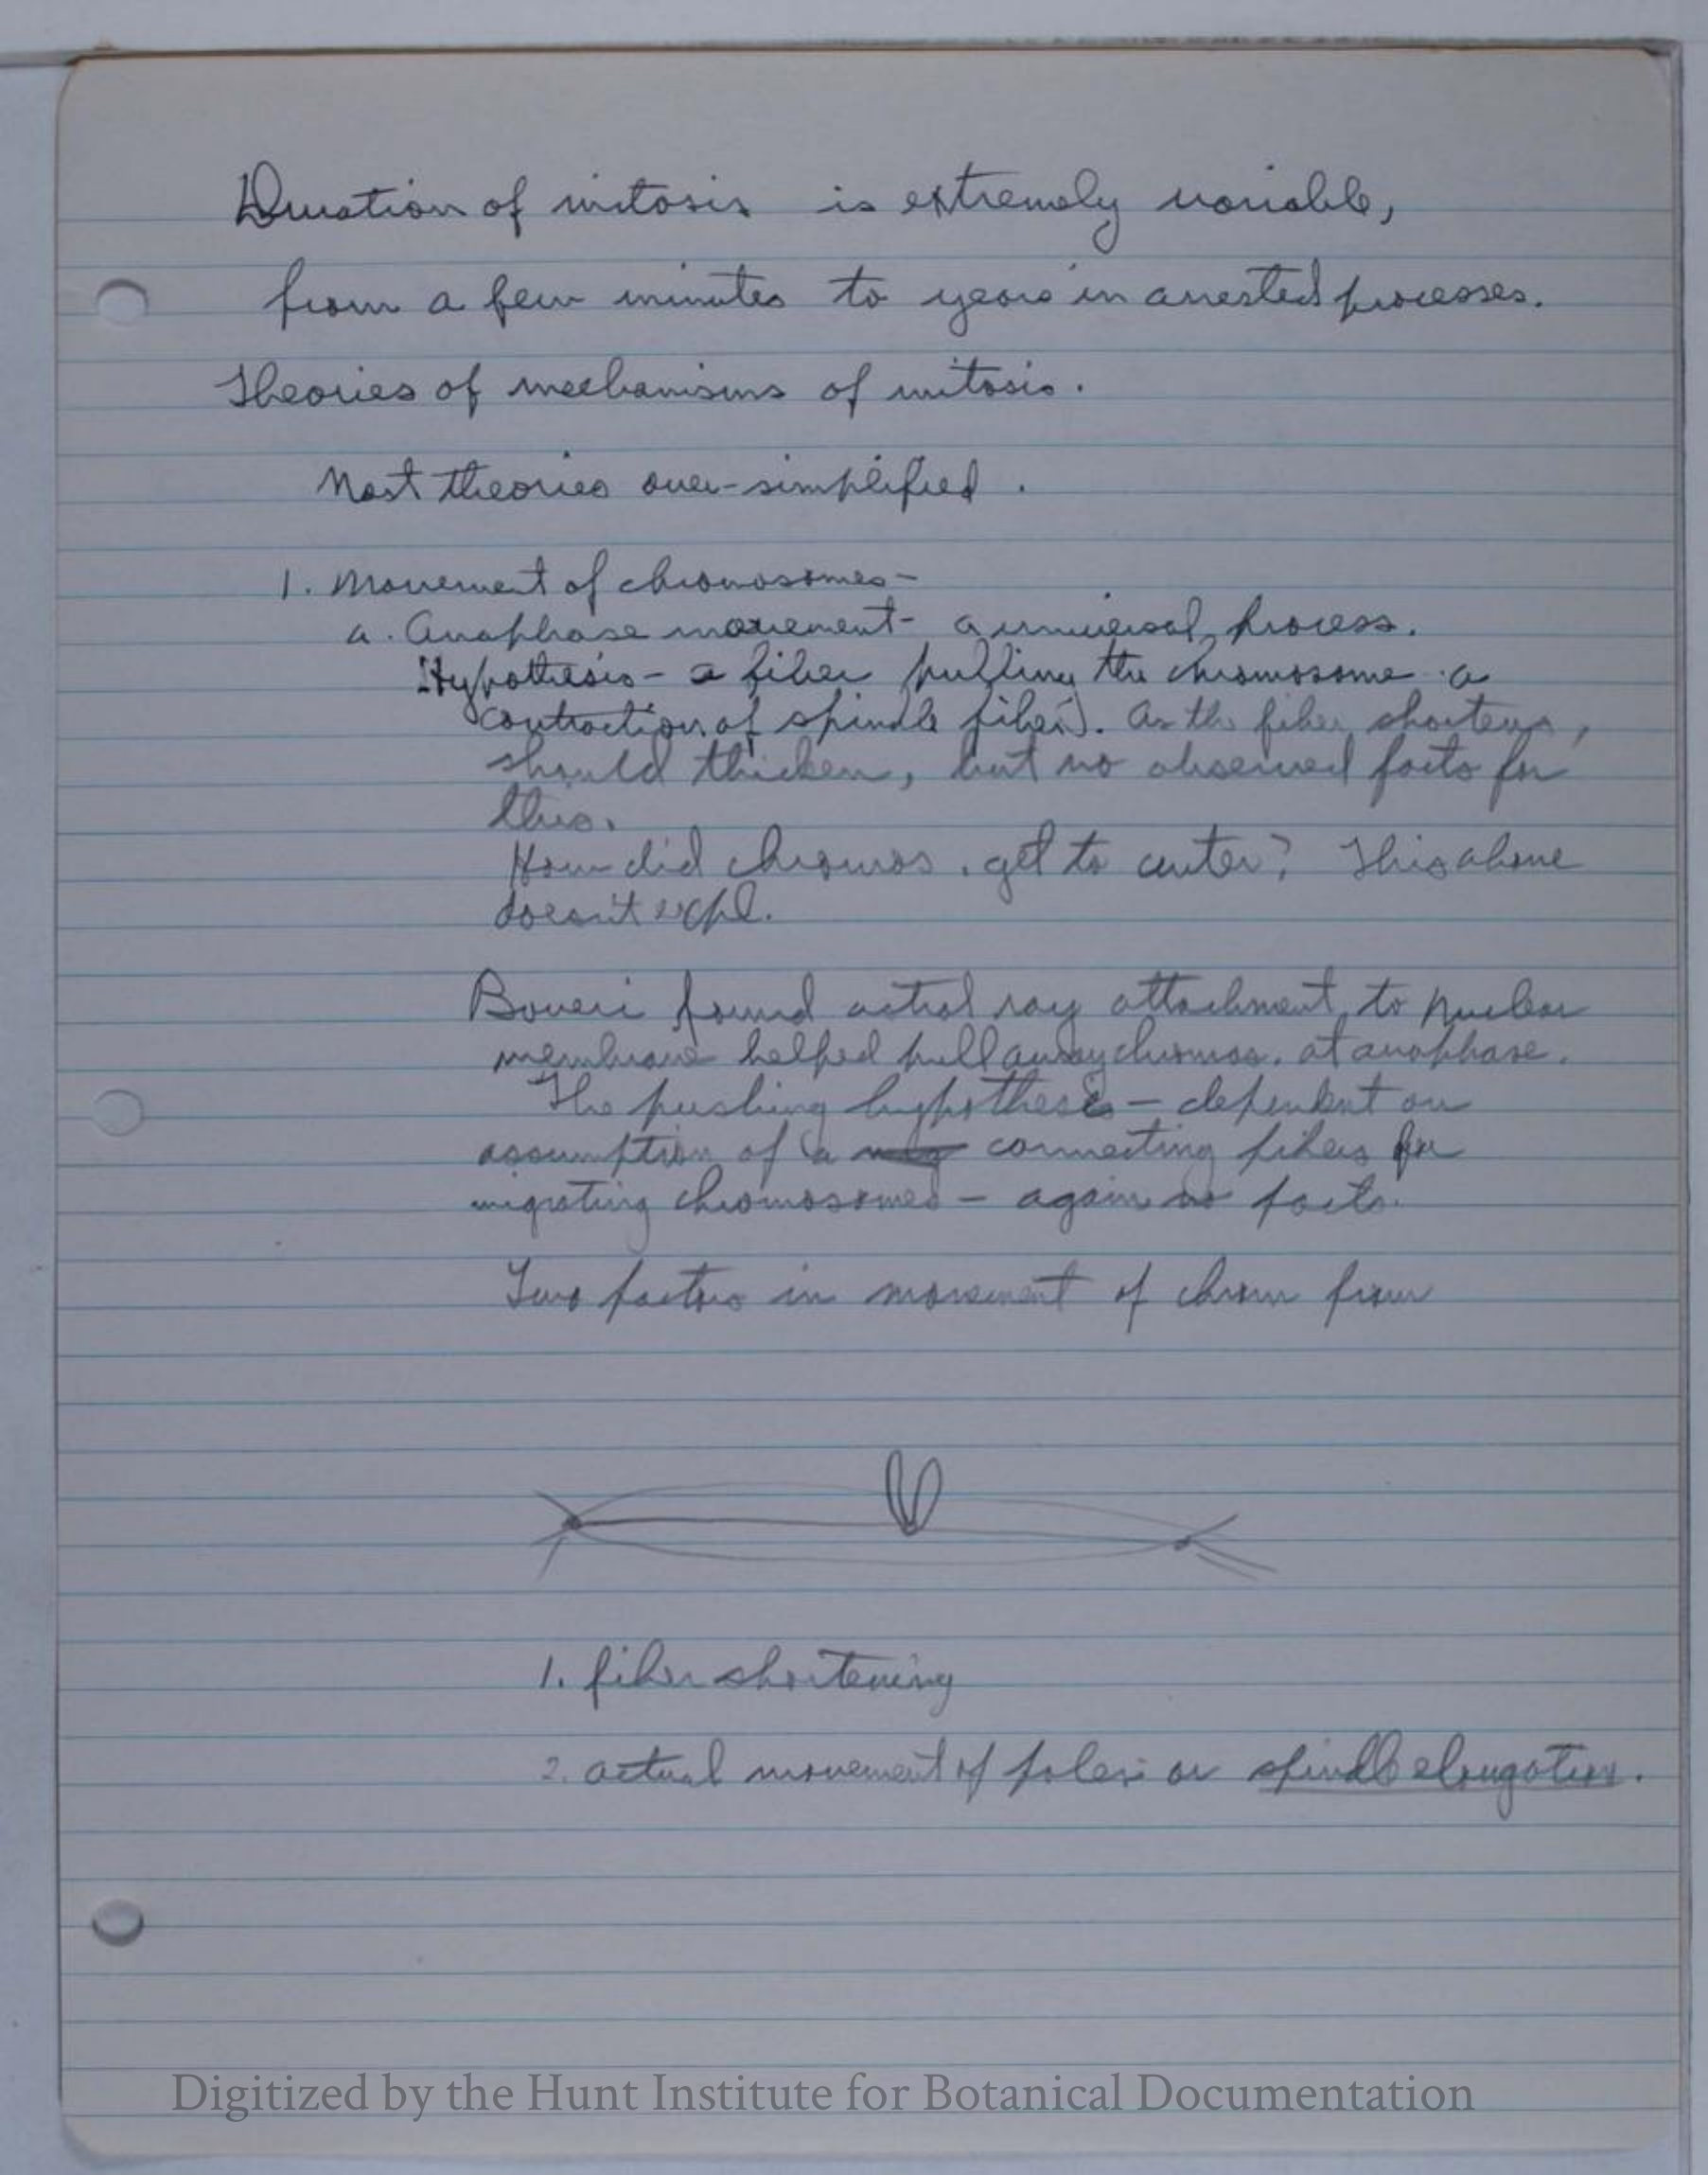 Duration of mitosis is extremely variable,
from a few minutes to years in arrested processes.
Theories of mechanisms of mitosis.
Most theories over-simplified.
1. Movement of chromosomes-
a. Anaphase movement- a universal process.
Hypothesis - a fiber pulling the chromosome a
contraction of spindle fiber). As the fiber shortens,
should thicken, but no observed facts for
this.
How did chromos. get to center? This alone
doesn't expl.
Boveri found astral ray attachment to nuclear
membrane helped pull away chromos. at anaphase.
The pushing hypothesis - dependent on
assumption of a connecting fibers for
migrating chromosomes - again no facts.
Two factors in movement of chrom from
1. fiber shortening
2. actual movement of poles or spindle elongation.
Digitized by the Hunt Institute for Botanical Documentation